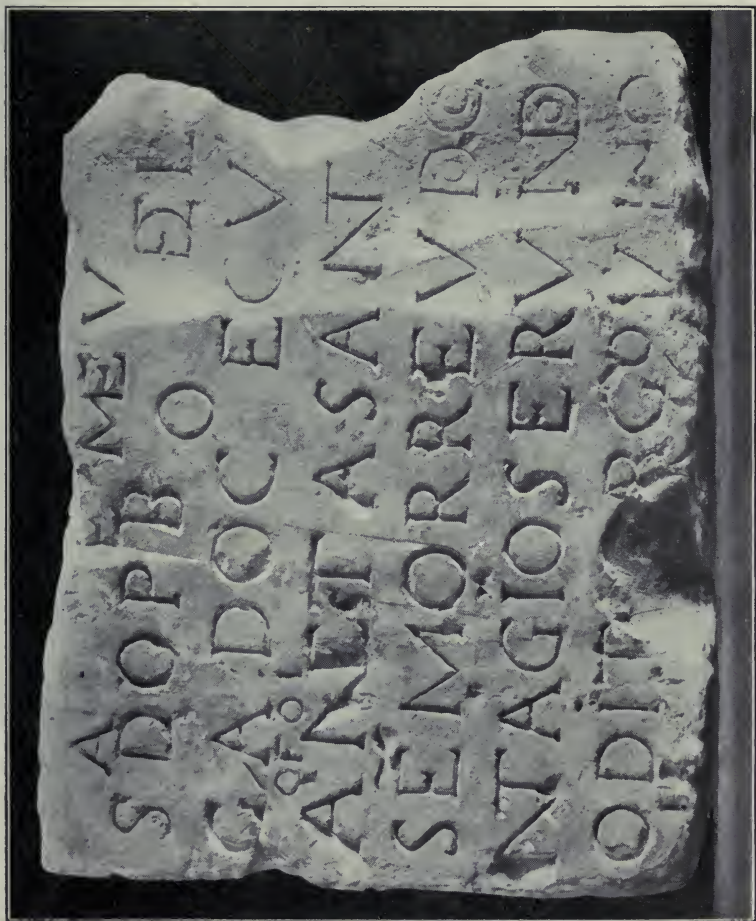 A MEV
SDOPBO
GADOCECV
OFO
ANTTASANT
SEMORREVDC
NTAGIOSERVND
ODIT